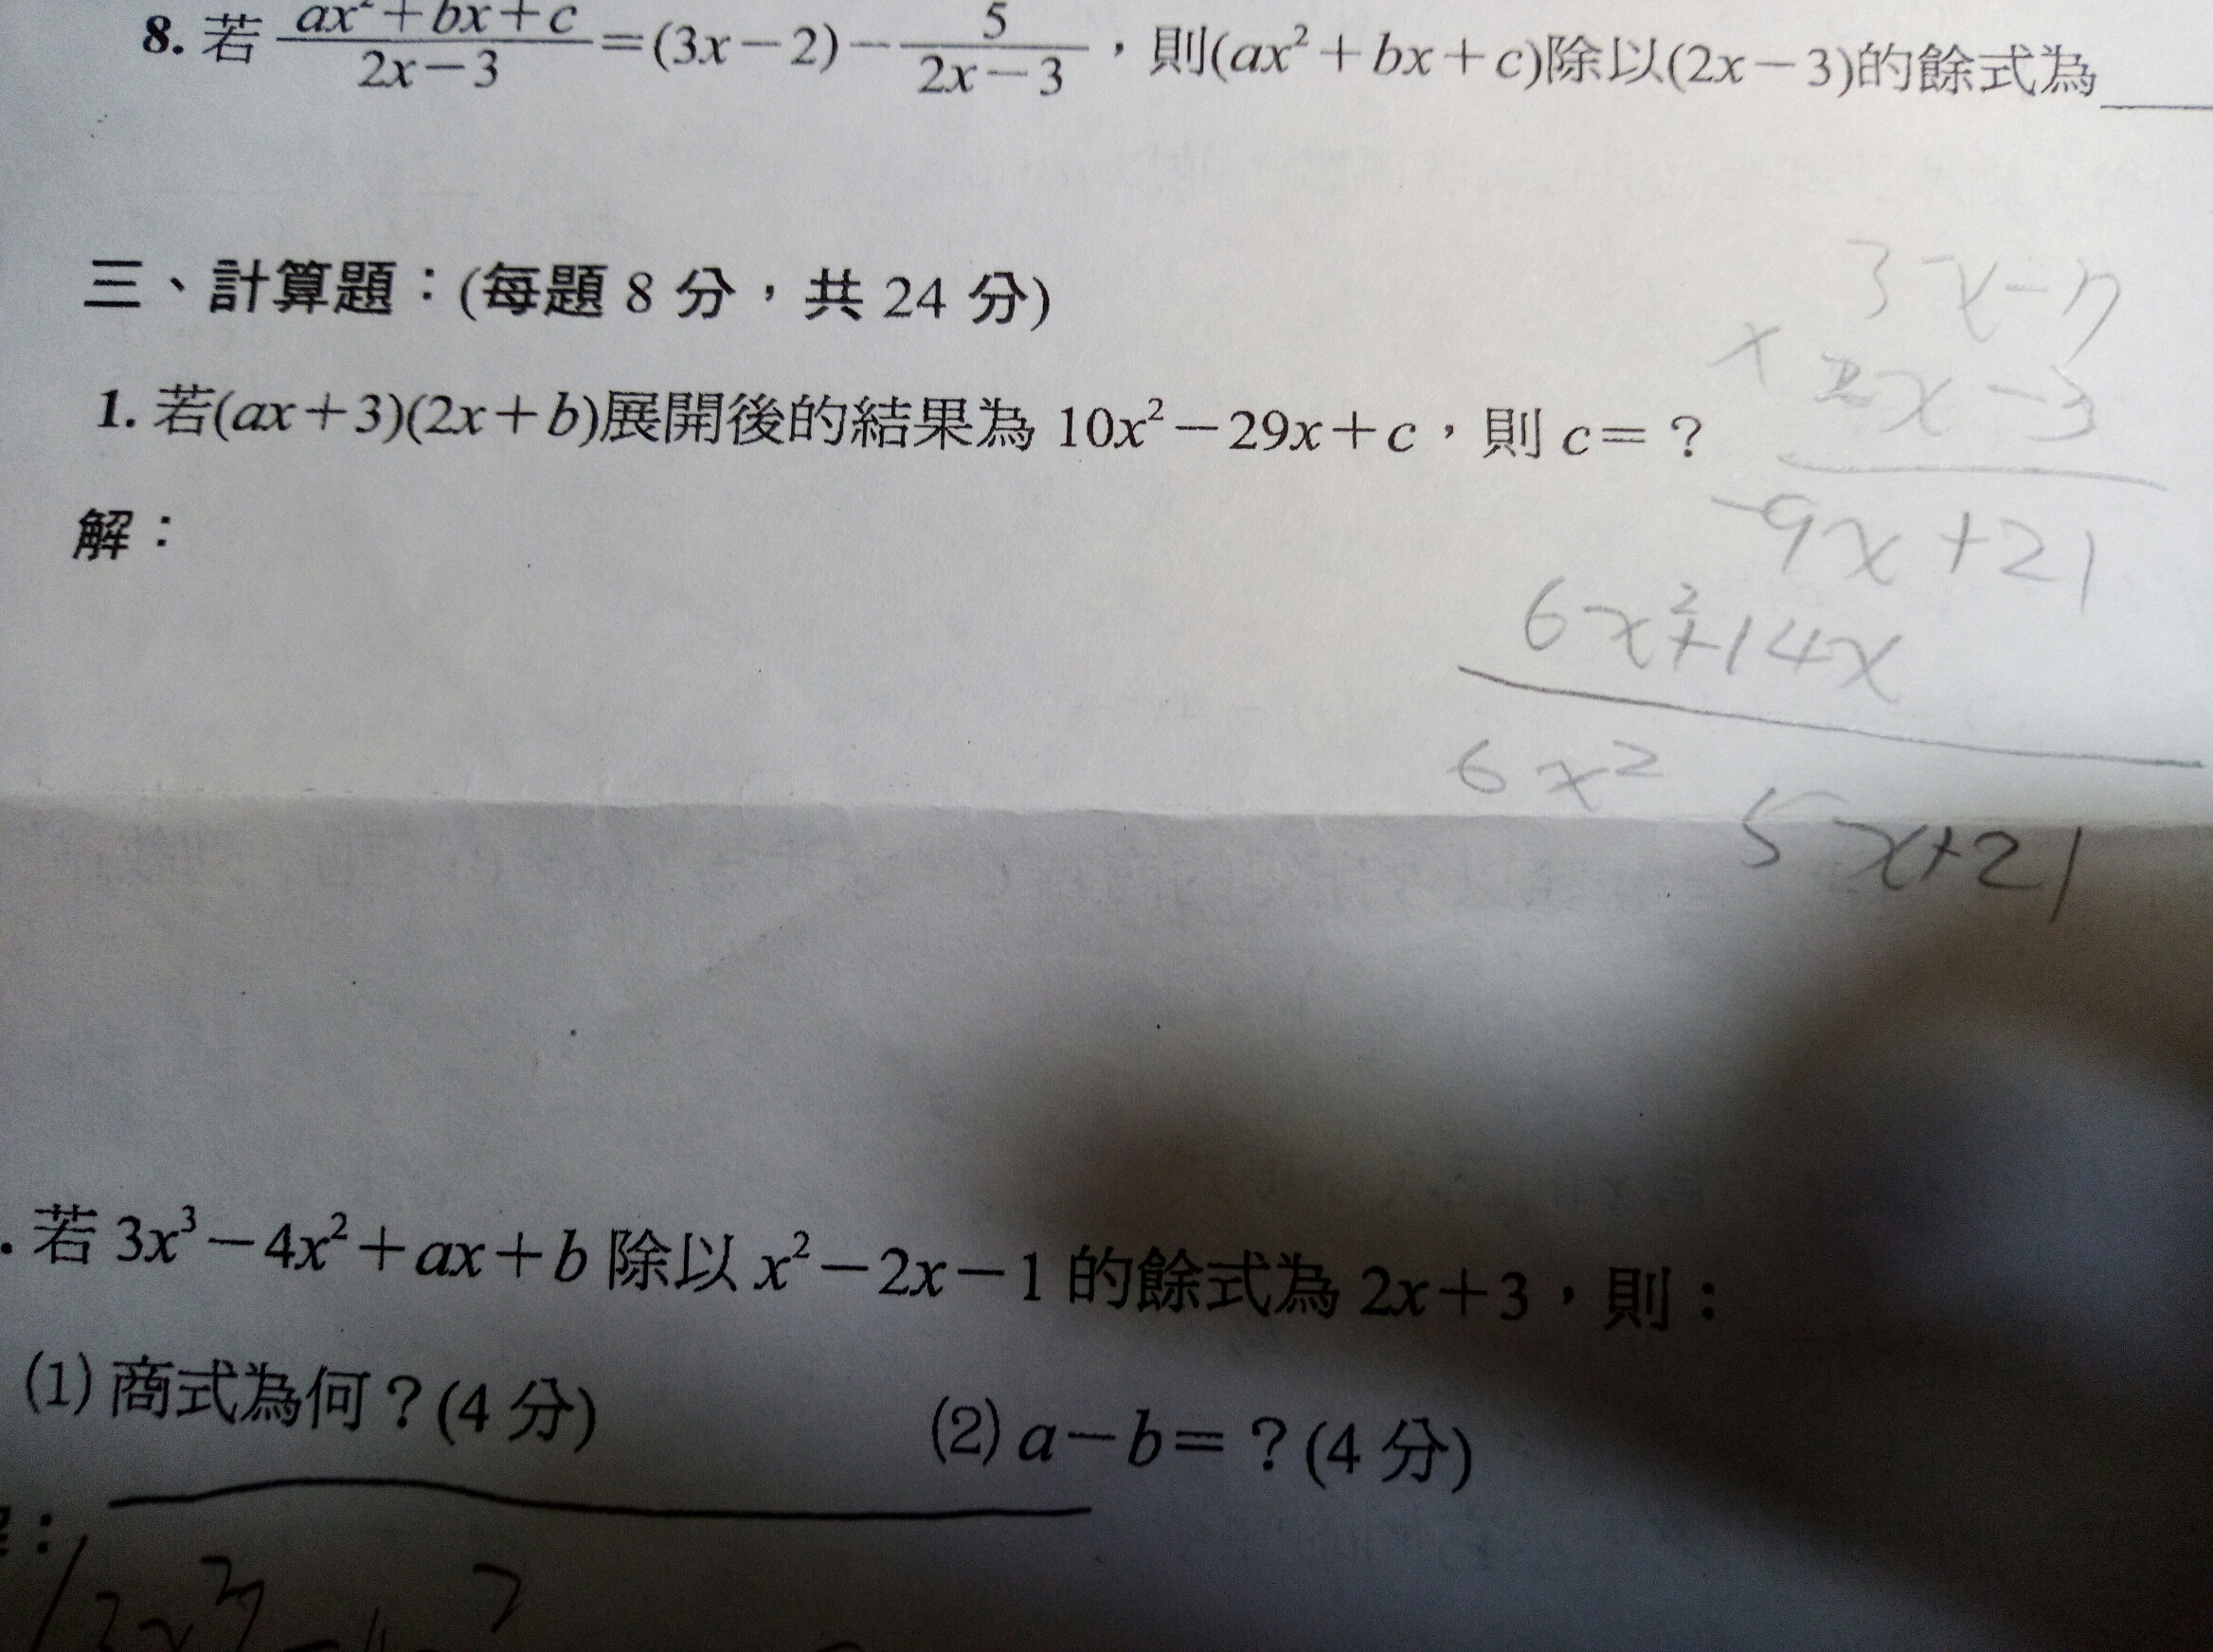 8. 若 ax²+bx+c / 2x−3 =(3x−2)− 5 / 2x−3 ，則(ax²+bx+c)除以(2x−3)的餘式為____
三、計算題：(每題 8 分，共 24 分)
1. 若(ax+3)(2x+b)展開後的結果為 10x²−29x+c，則 c=？
解：
3x−7
× 2x−3
−9x+21
6x²+14x
6x² 5x+21
. 若 3x³−4x²+ax+b 除以 x²−2x−1 的餘式為 2x+3，則：
(1) 商式為何？(4 分) (2) a−b=？(4 分)
：